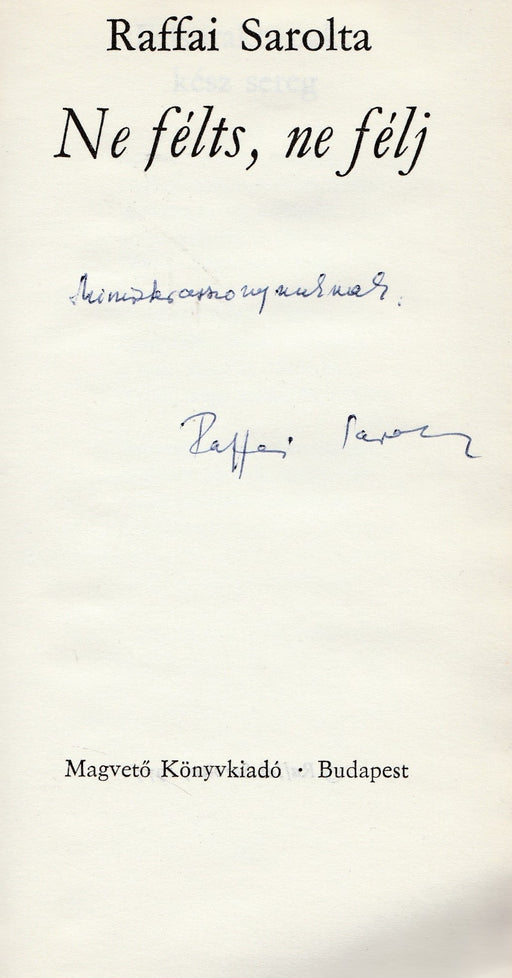 Raffai Sarolta
Ne félts, ne félj
Miniszterasszonyunknak.
Raffai Sarolta
Magvető Könyvkiadó · Budapest